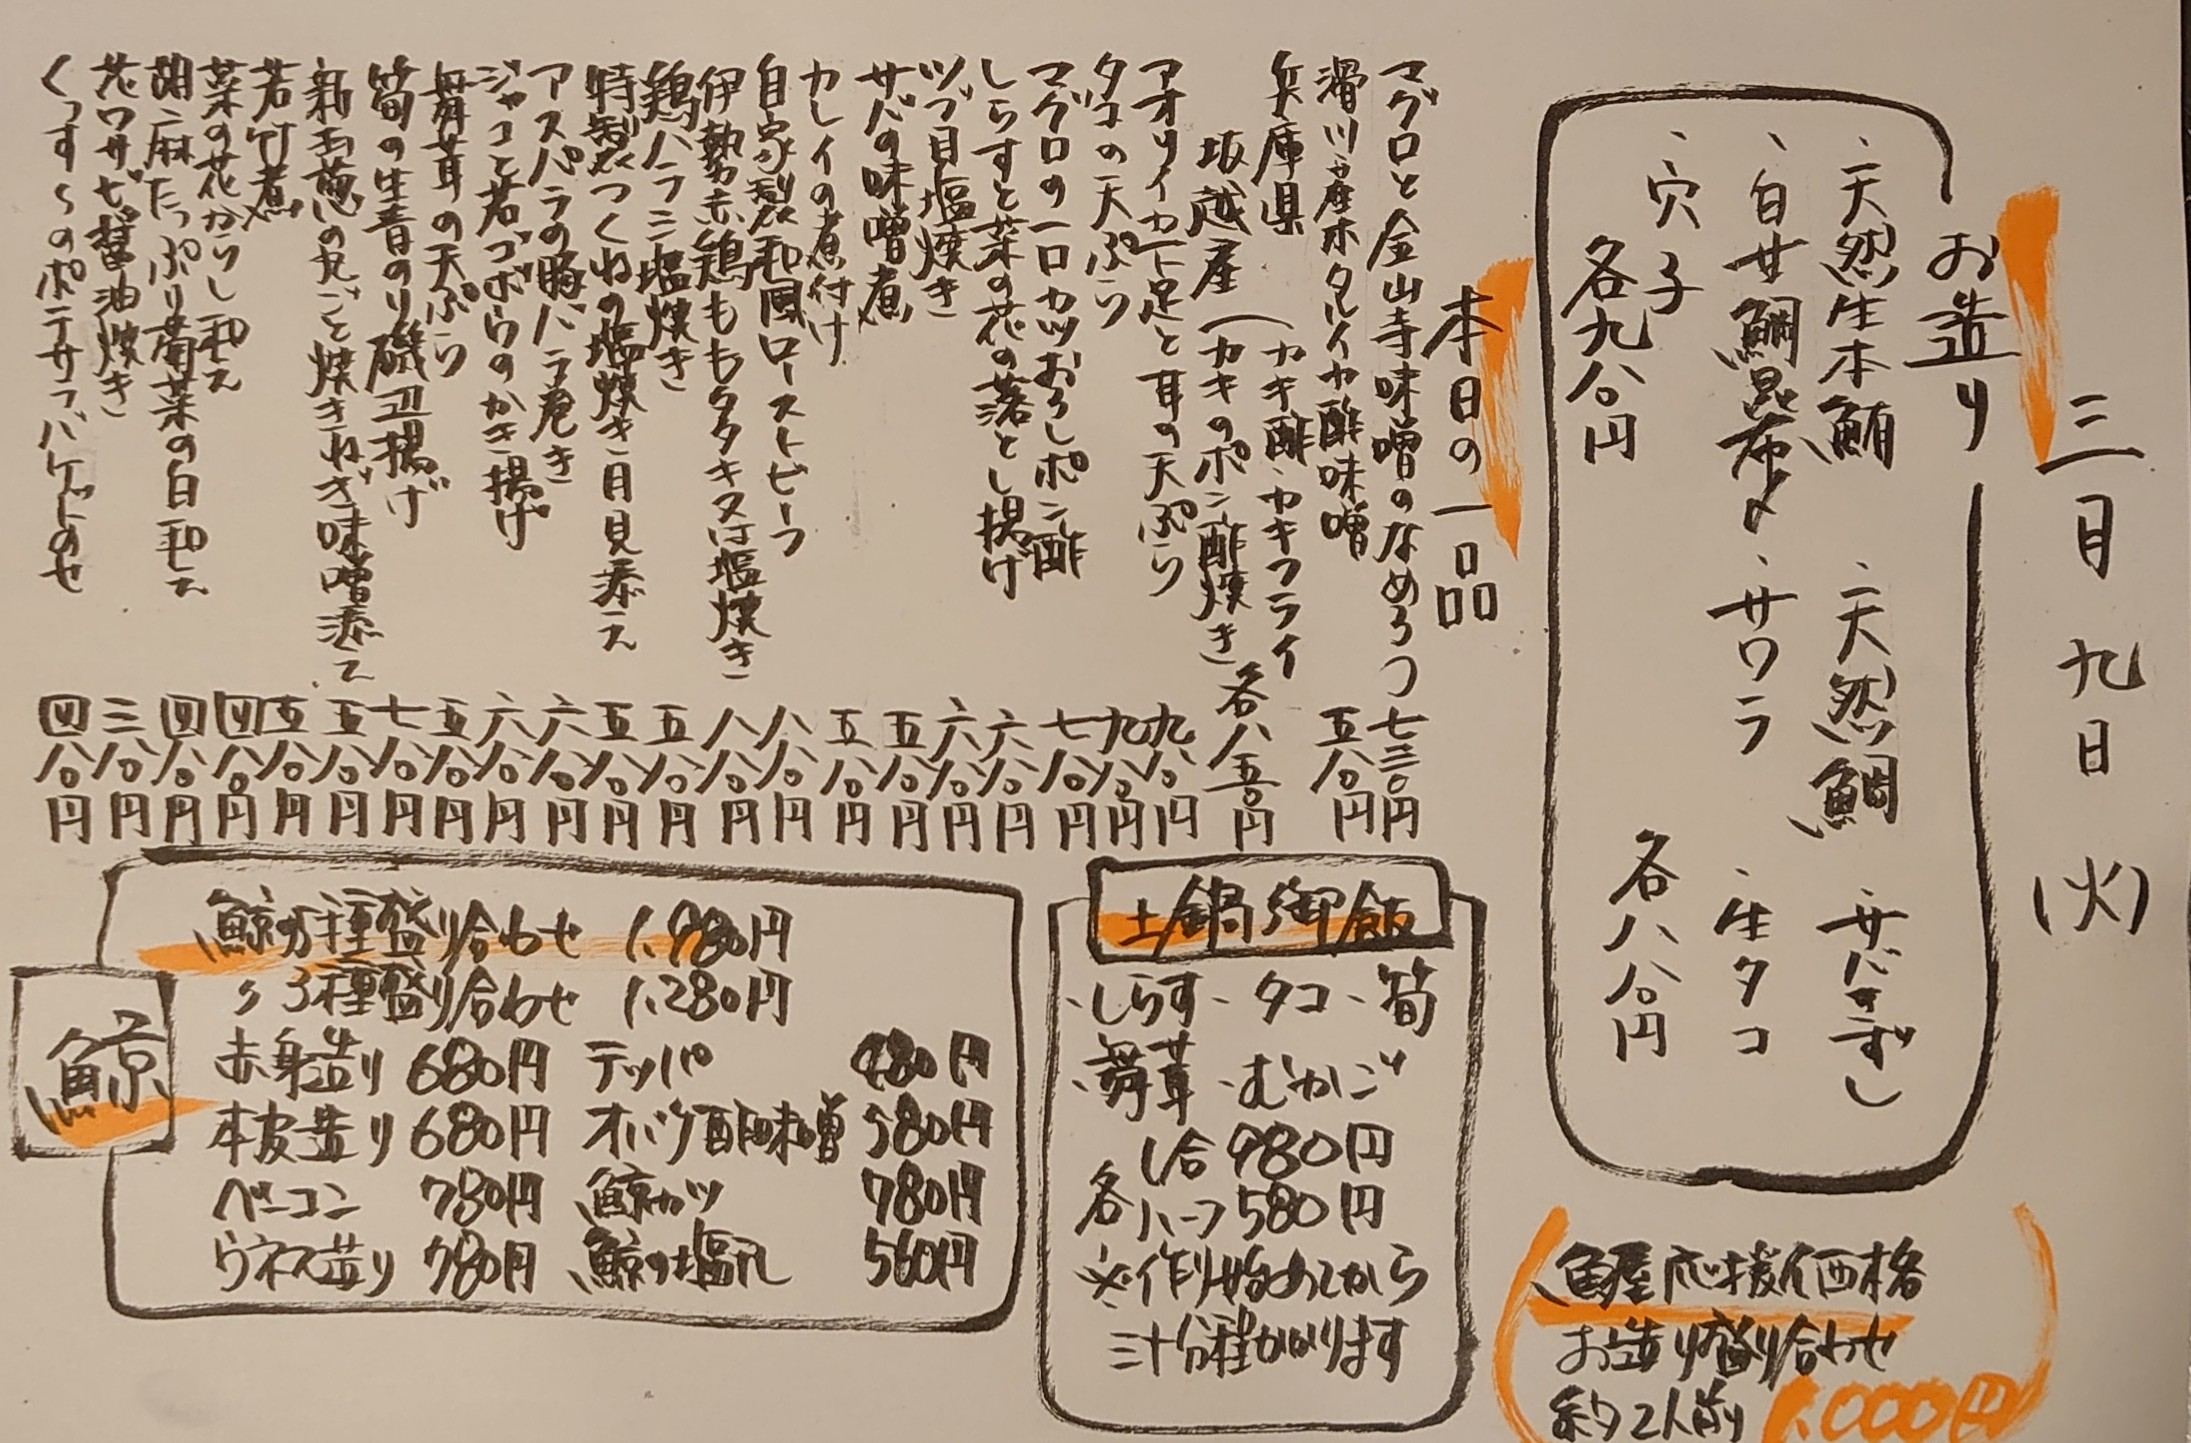 三月九日(火)
お造り
、天然生本鮪 、天然鯛 、サバきずし
、白甘鯛昆布〆 、サワラ 、生タコ
、穴子
各九八〇円 各八八〇円
本日の一品
マグロと金山寺味噌のなめろう 七三〇円
滑川産ホタルイカ酢味噌 五八〇円
兵庫県
坂越産(カキ酢・カキフライ
カキのポン酢焼き 各八五〇円
アオリイカ下足と耳の天ぷら 九八〇円
タコの天ぷら 九八〇円
マグロの一口カツおろしポン酢 七八〇円
しらすと菜の花の落とし揚げ 六八〇円
ツブ貝塩焼き 六八〇円
サバの味噌煮 五八〇円
カレイの煮付け 五八〇円
自家製和風ローストビーフ 八八〇円
伊勢赤鶏ももタタキ又は塩焼き 八八〇円
鶏ハラミ塩焼き 五八〇円
特製つくねの塩焼き月見添え 五八〇円
アスパラの豚バラ巻き 六八〇円
ジャコと若ゴボウのかき揚げ 六八〇円
舞茸の天ぷら 五八〇円
筍の生青のり磯辺揚げ 七八〇円
新玉葱の丸ごと焼きねぎ味噌添え 五八〇円
若竹煮 五八〇円
菜の花からし和え 四八〇円
胡麻たっぷり菊菜の白和え 四八〇円
花ワサビ醤油焼き 三八〇円
くっすんのポテサラバケットのせ 四八〇円
魚屋応援価格
お造り盛り合わせ
約2人前 1,000円
土鍋御飯
、しらす 、タコ 、筍
、舞茸 、むかご
1合 980円
各ハーフ 580円
※作り始めてから
三十分程かかります
鯨
鯨の5種盛り合わせ 1,980円
〃 3種盛り合わせ 1,280円
赤身造り 680円 テッパ 480円
本皮造り 680円 オバケ酢味噌 580円
ベーコン 780円 鯨カツ 780円
ウネス造り 780円 鯨の塩タレ 560円